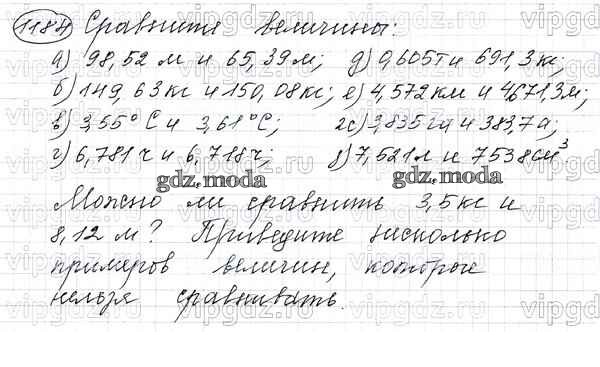 1184 Сравните величины:
а) 98,52 м и 65,39 м; д) 0,605т и 691,3 кг;
б) 149,63 кг и 150,08 кг; е) 4,572 км и 4671,3 м;
в) 3,55 °C и 3,61 °C; ж) 3,835 га и 383,7 а;
г) 6,781 ч и 6,718 ч; з) 7,521 л и 7538 см³.
gdz.moda gdz.moda
Можно ли сравнить 3,5 кг и
8,12 м? Приведите несколько
примеров величин, которые
нельзя сравнивать.